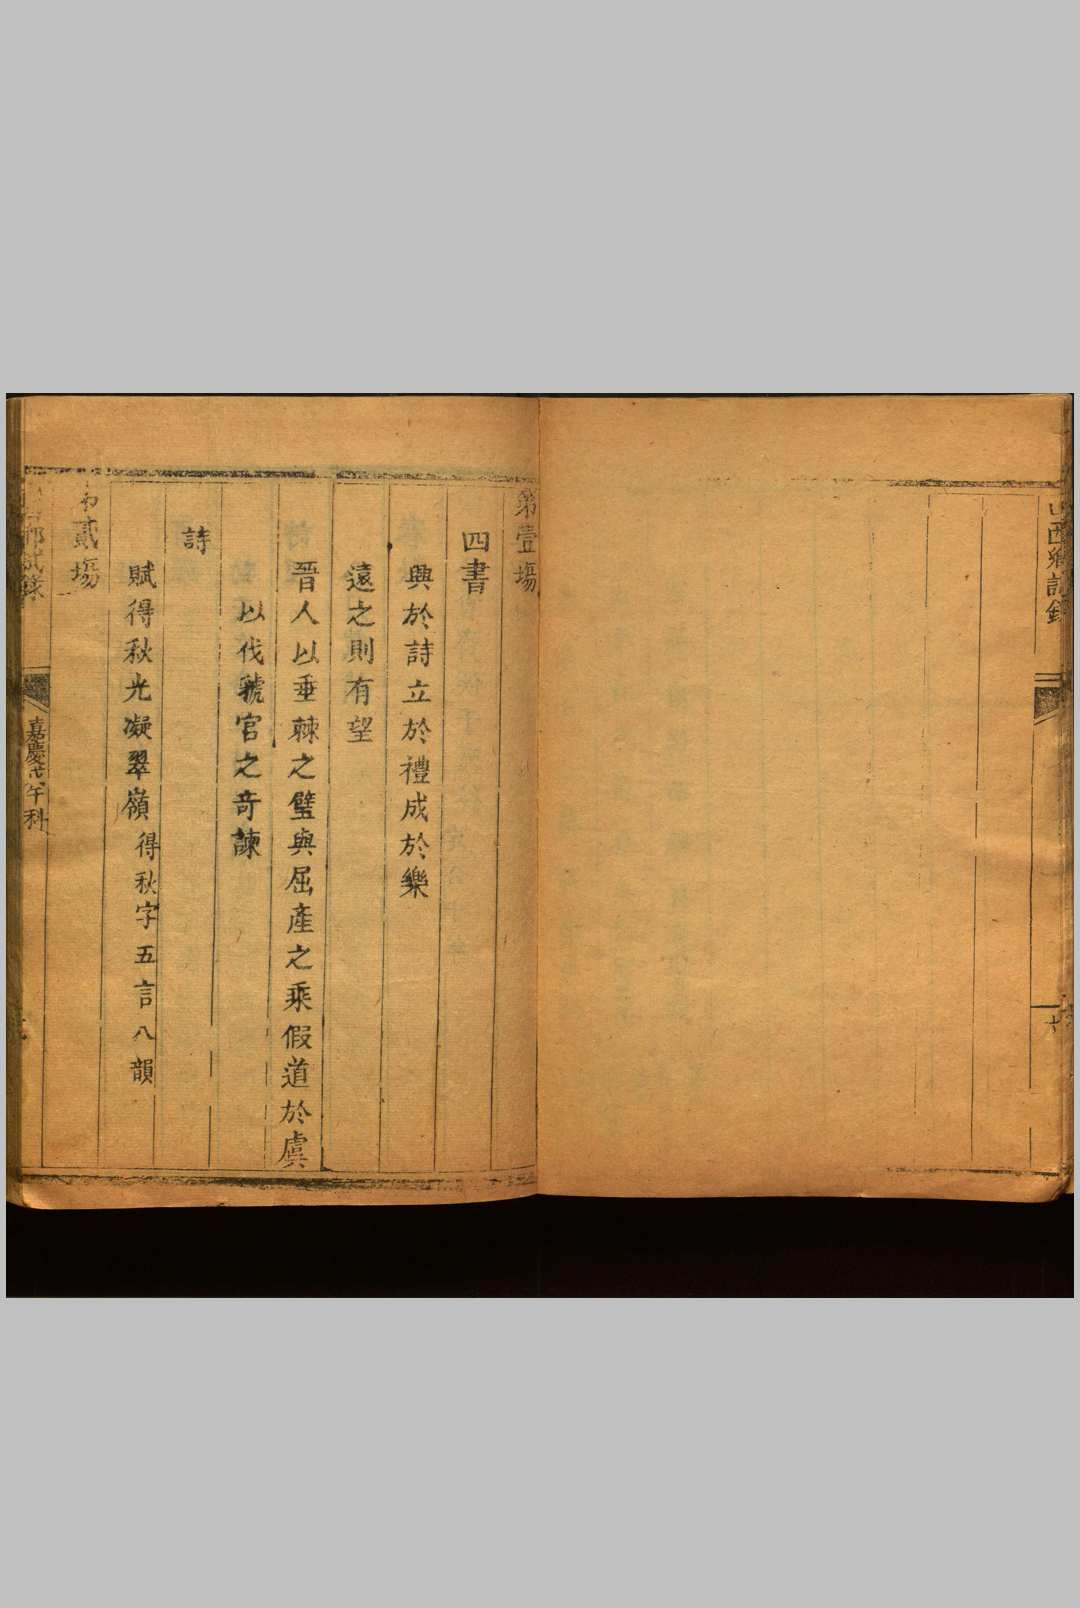 山西鄉試錄
六
第壹場
四書
興於詩立於禮成於樂
遠之則有望
晉人以垂棘之璧與屈產之乘假道於虞
以伐虢宫之竒諫
詩
賦得秋光凝翠嶺得秋字五言八韻
貳塲
鄉試錄
嘉慶戊午科